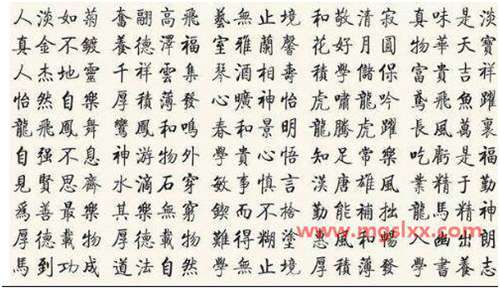 人淡如菊 奮翮高飛 藝無止境 和敬清寂 真味是淡
真金不鍍 養德澤福 室雅蘭馨 花好月圓 物華天寶
人杰地靈 千祥雲集 琴酒相壽 學儲 富貴吉祥
怡然自樂 厚積薄發 心曠神怡 虎嘯龍吟 鳶飛魚躍
龍飛鳳舞 鸞鳳和鳴 春和景明 龍騰虎躍 長風萬裏
自强不息 神游物外 學貴心悟 知足常樂 吃虧是福
見賢思齊 水滴石穿 敏事慎言 漢唐雄風 業精于勤
爲善最樂 其樂無窮 鍥而不捨 勤能補拙 龍馬精神
www.mgslxx.com
厚德載物 難得糊塗 惠風和暢 人幽出朗
馬到功成 道法自然 學無止境 厚積薄發 學書養志